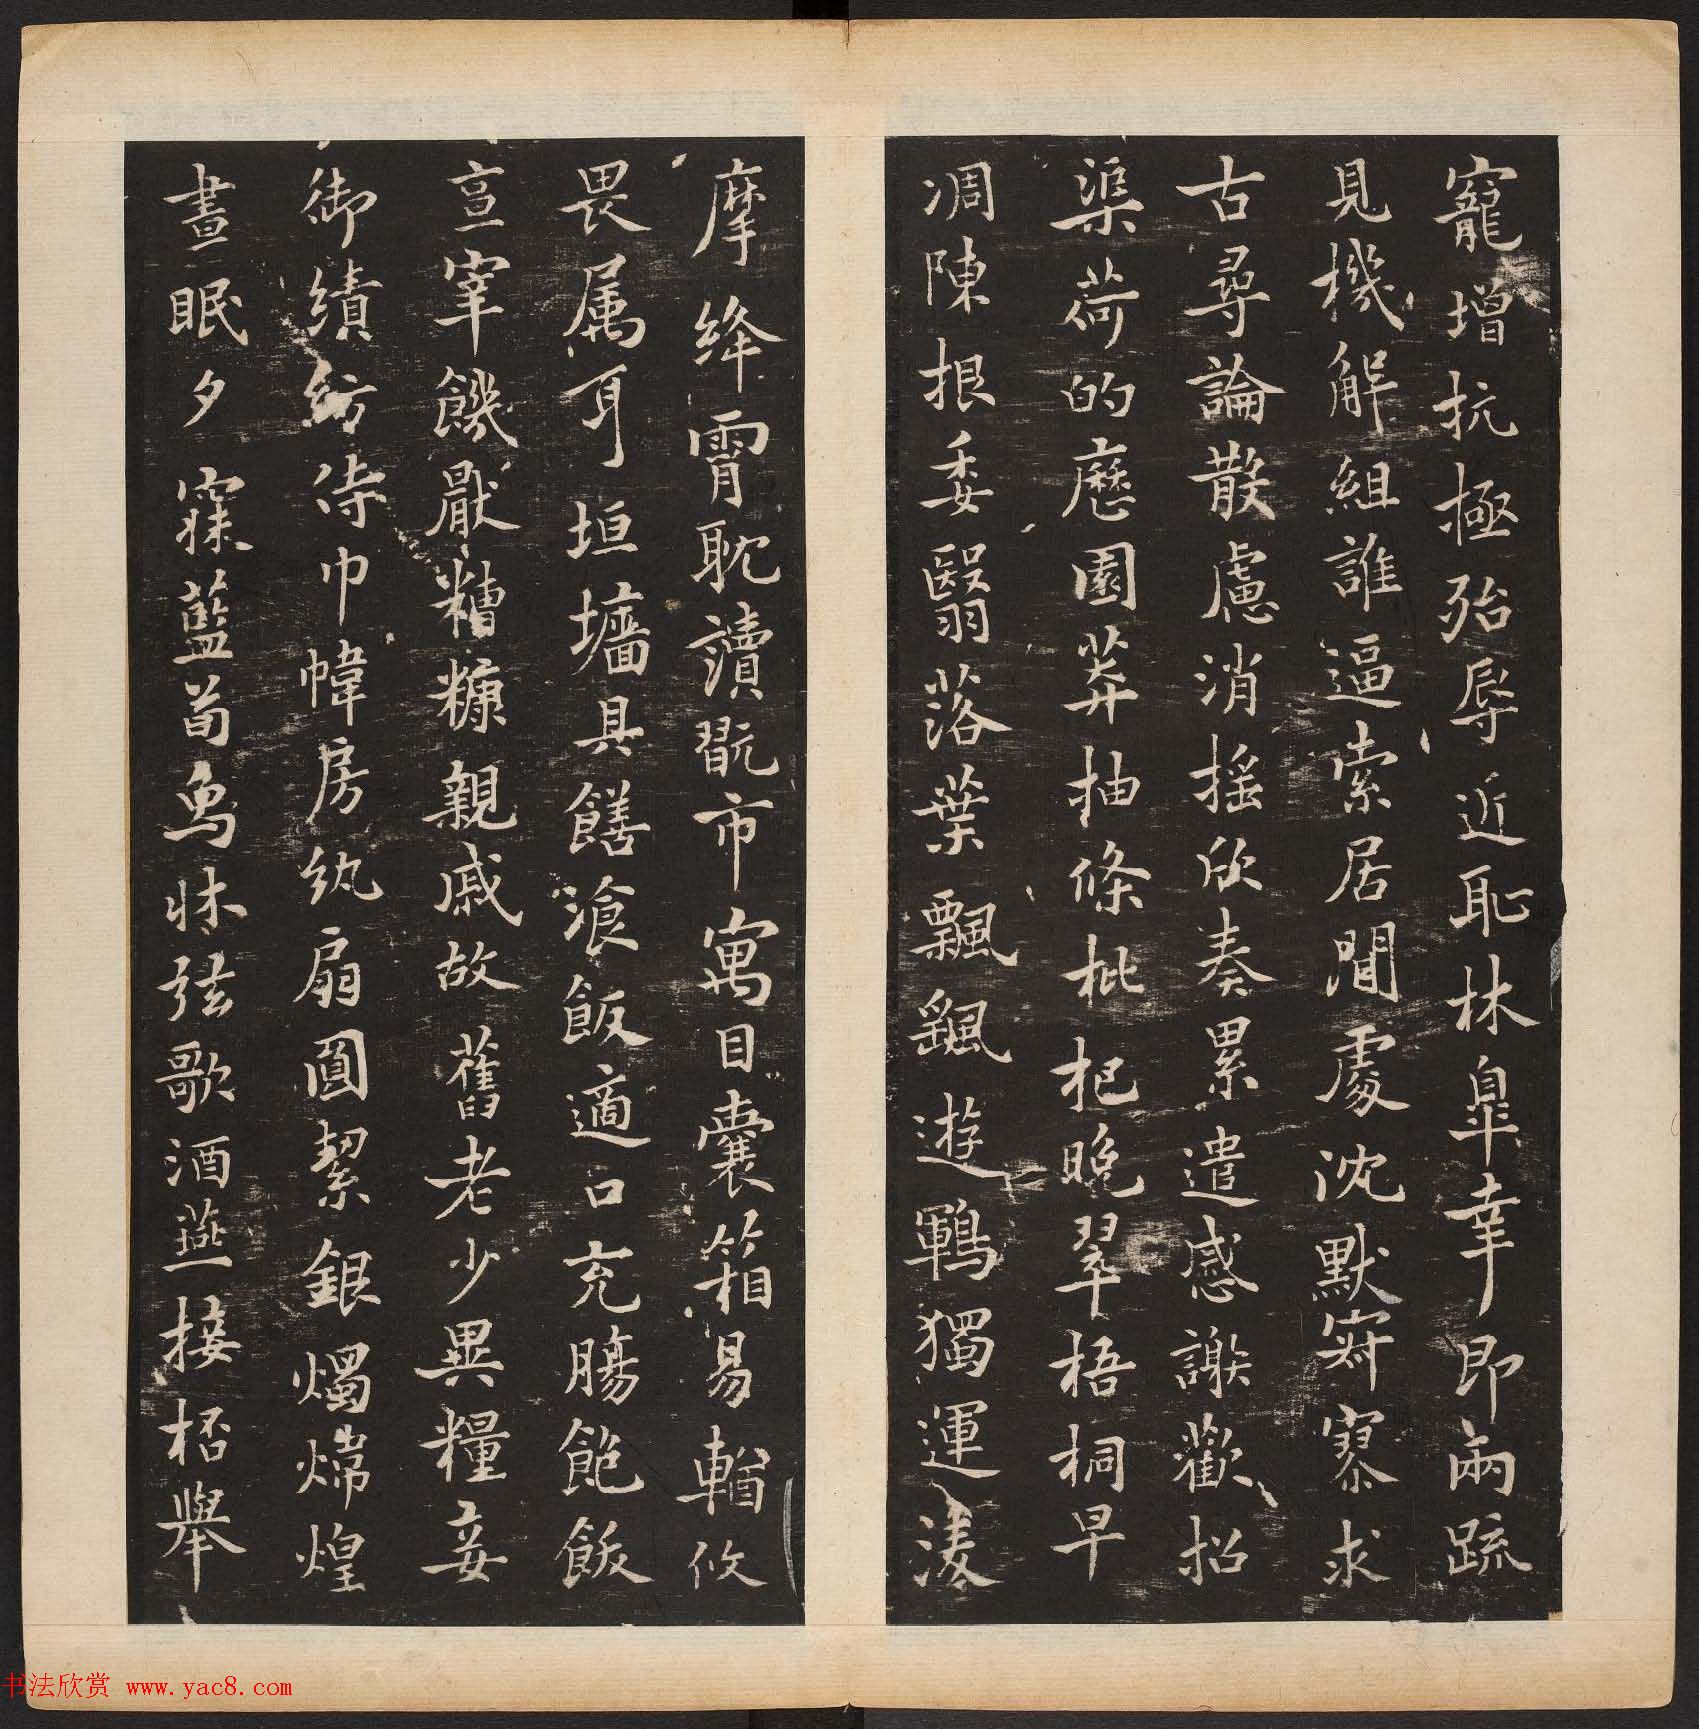 寵增抗極殆辱近恥林皋幸即兩疏
見機解組誰逼索居閒處沈默寂寥求
古尋論散慮消搖欣奏累遣感謝歡招
渠荷的歷園莽抽條枇杷晚翠梧桐早
凋陳根委翳落葉飄颻遊鵾獨運淩
摩絳霄耽讀翫市寓目囊箱易輶攸
畏属耳垣墻具饍飡飯適口充膓飽飫
亨宰饑厭糟糠親戚故舊老少異糧妾
御績紡侍巾幃房紈扇圓絜銀燭煒煌
晝眠夕寐藍笋象牀弦歌酒燕接桮舉
书法欣赏 www.yac8.com